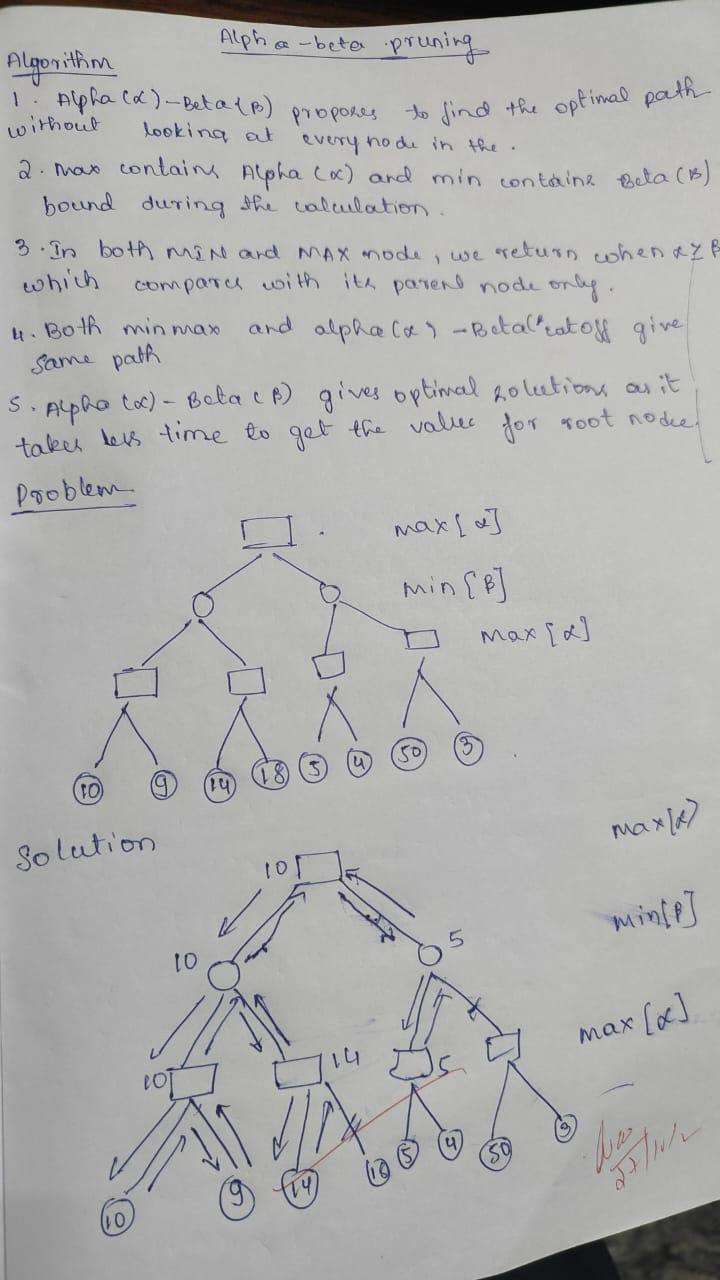 Alpha-beta pruning
Algorithm
1. Alpha (α) - Beta (β) proposes to find the optimal path
without looking at every node in the .
2. Max contains Alpha (α) and min contains Beta (β)
bound during the calculation.
3. In both MIN and MAX node, we return when α ≥ β
which compares with its parent node only.
4. Both minmax and alpha (α) - Beta(β) cut off give
same path
5. Alpha (α) - Beta (β) gives optimal solutions as it
takes less time to get the value for root node
Problem
max [α]
min [β]
max [α]
10 9 14 18 5 4 50 3
Solution
max [α]
10
min [β]
10 5
max [α]
10 14 5
10 9 14 18 5 4 50 3